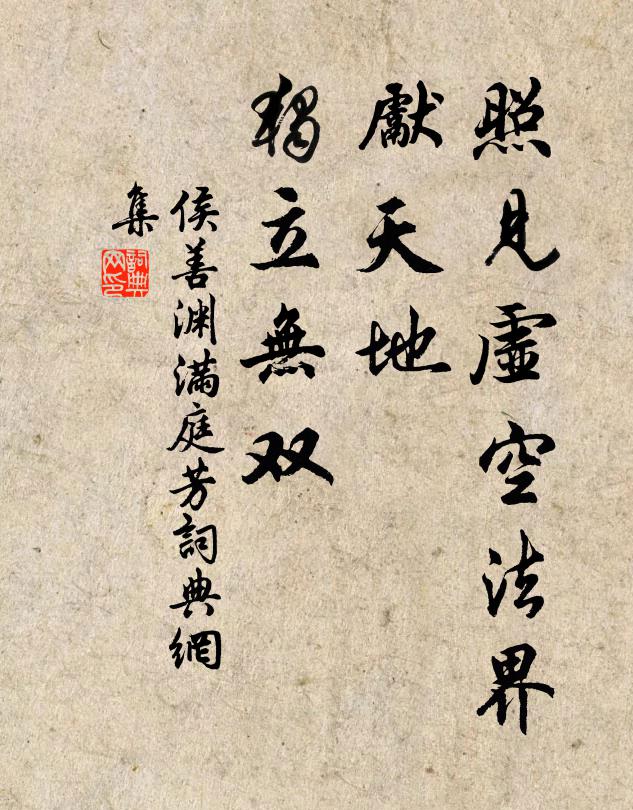 照見虛空法界
獻天地
獨立無双
侯善渊滿庭芳詞典網
集
詞典
网印